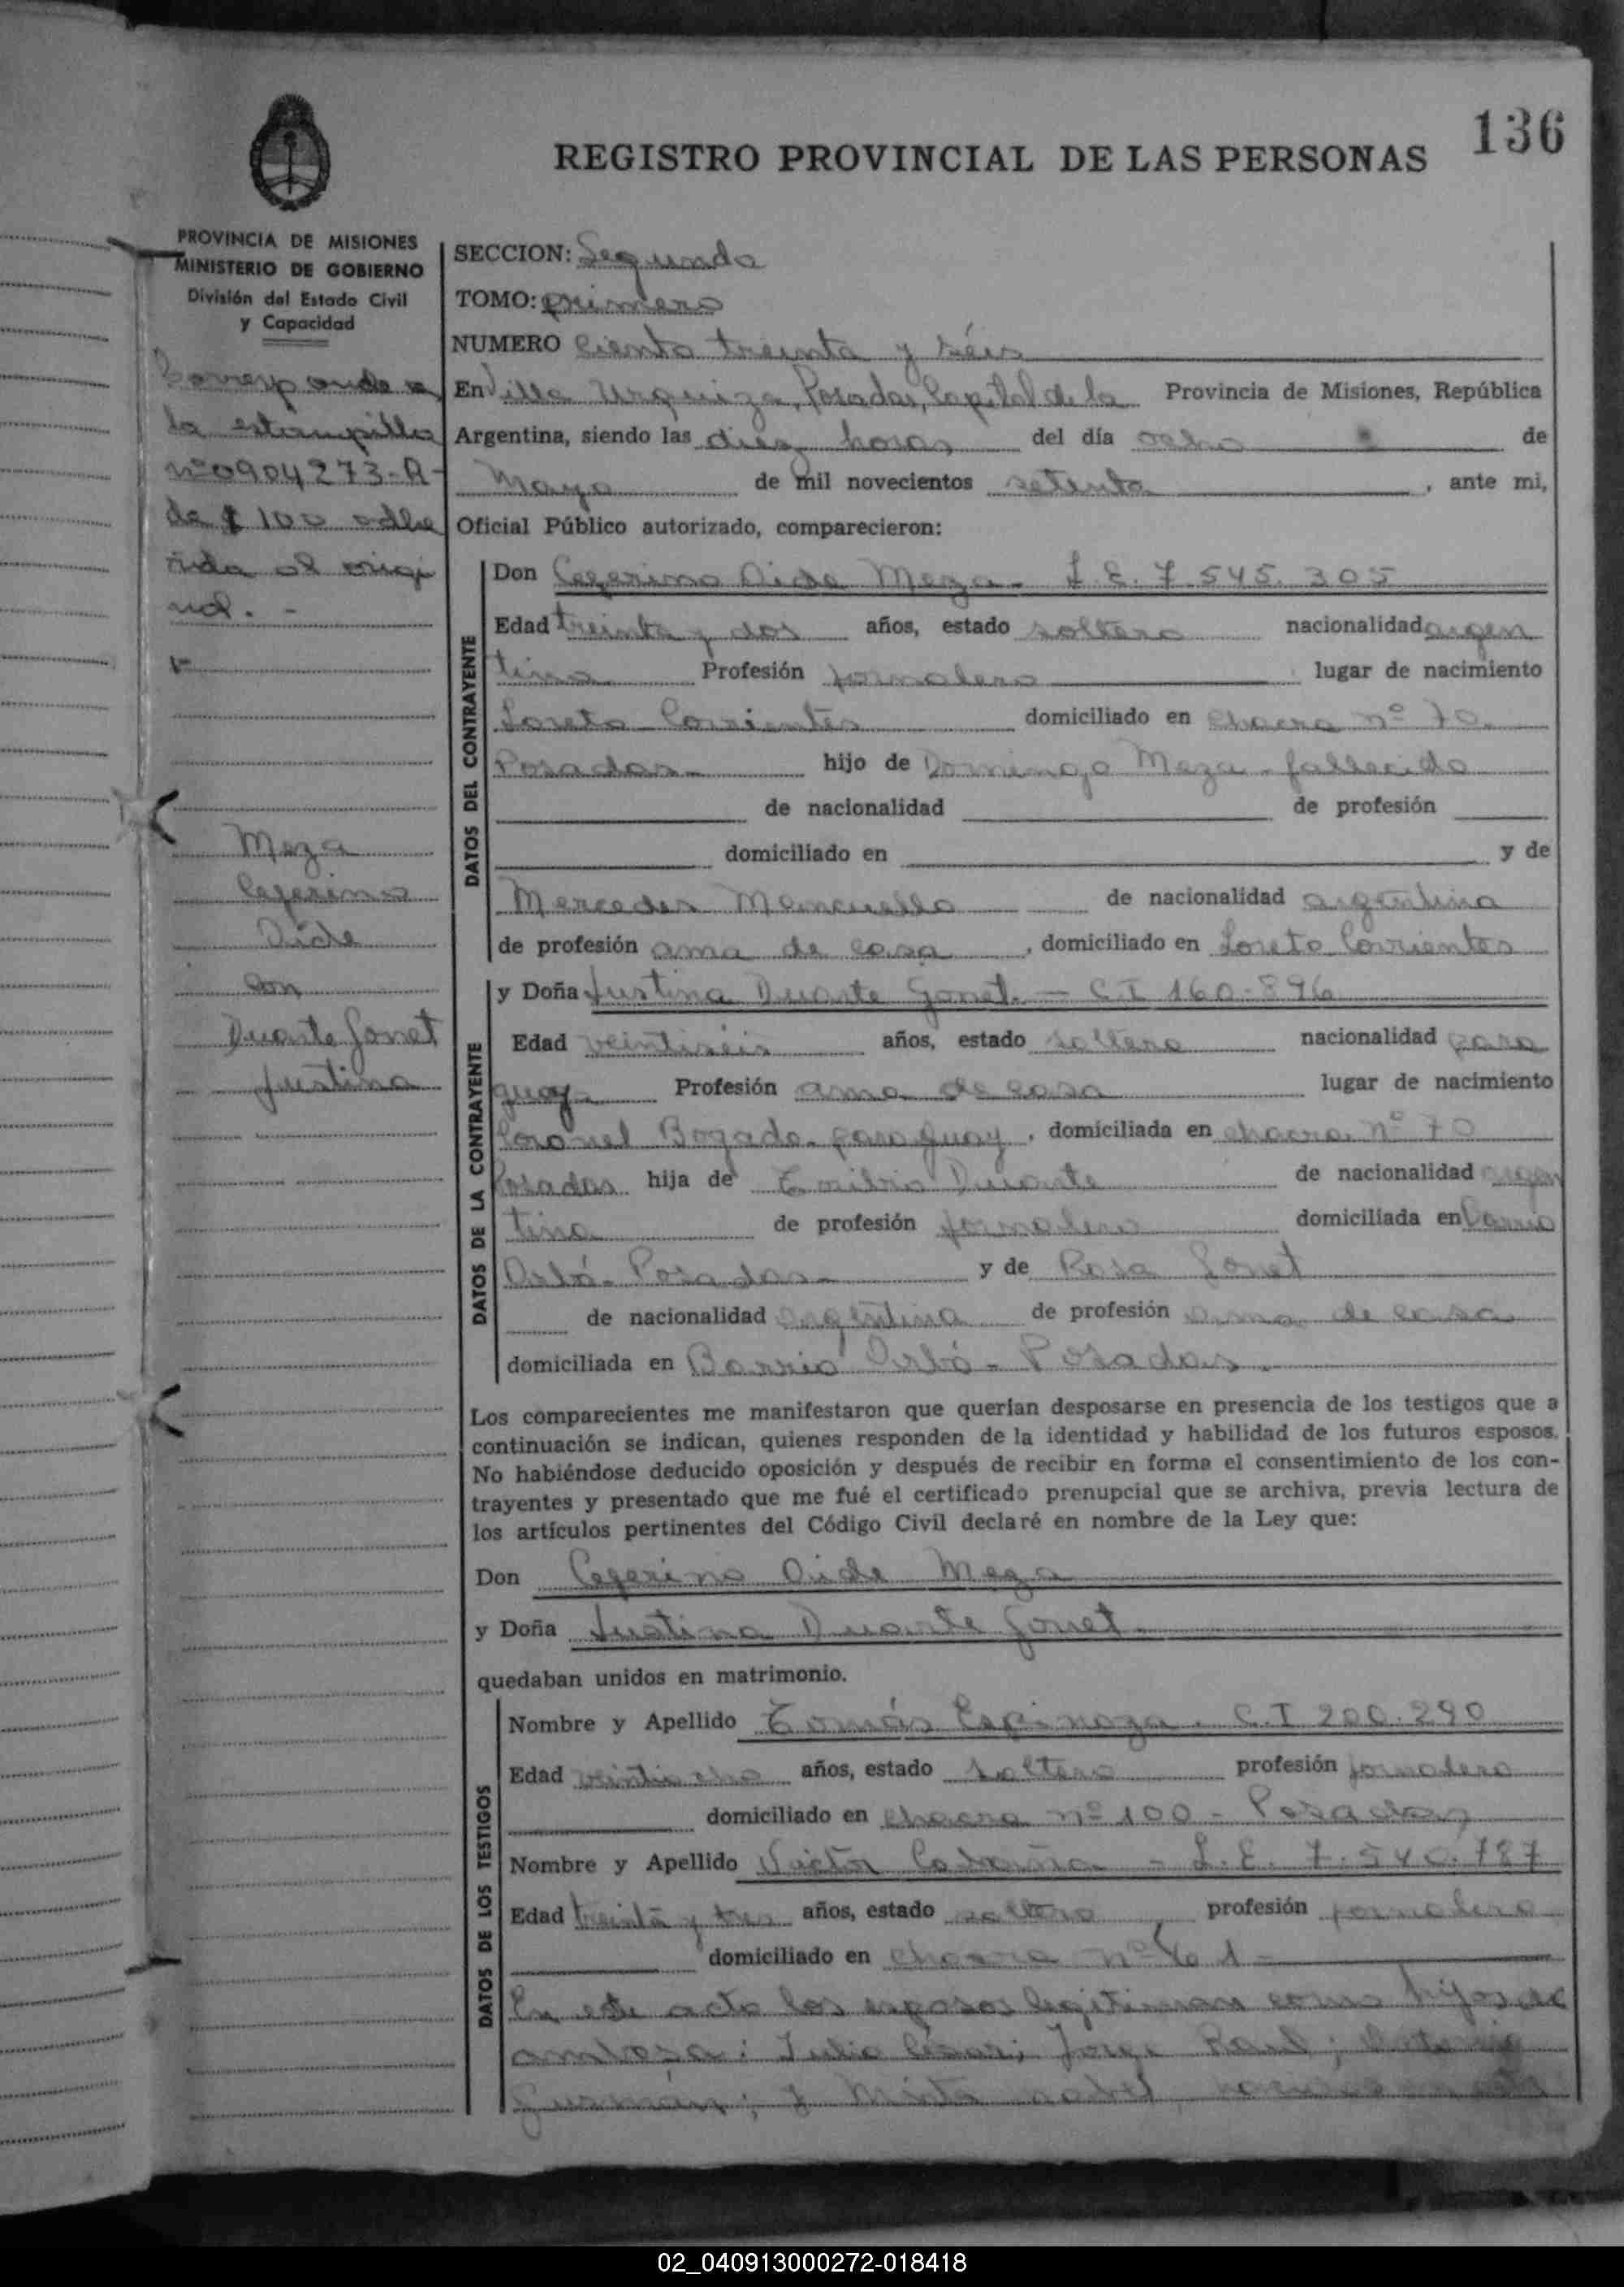 136
REGISTRO PROVINCIAL DE LAS PERSONAS
PROVINCIA DE MISIONES
MINISTERIO DE GOBIERNO
División del Estado Civil
y Capacidad
Corresponde a
la estampilla
nº0904273-A-
de $ 100 adhe
rida al origi
nal. -
Meza
Ceferino
Oide
con
Duarte Gonet
Justina
SECCION: Segunda
TOMO: primero
NUMERO Ciento treinta y séis
En Villa Urquiza, Posadas, Capital de la Provincia de Misiones, República
Argentina, siendo las diez horas del día ocho de
Mayo de mil novecientos setenta, ante mi,
Oficial Público autorizado, comparecieron:
DATOS DEL CONTRAYENTE
Don Ceferino Oide Meza - L.E. 7.545.305
Edad treinta y dos años, estado soltero nacionalidad argen
tina Profesión jornalero lugar de nacimiento
Loreto Corrientes domiciliado en chacra nº 70.
Posadas - hijo de Domingo Meza - fallecido
de nacionalidad de profesión
domiciliado en y de
Mercedes Mancuello de nacionalidad argentina
de profesión ama de casa, domiciliado en Loreto Corrientes
DATOS DE LA CONTRAYENTE
y Doña Justina Duarte Gonet. - C.I 160.896
Edad veintiséis años, estado soltera nacionalidad para
guay - Profesión ama de casa lugar de nacimiento
Coronel Bogado - paraguay, domiciliada en chacra nº 70
Posadas hija de Emilio Duarte de nacionalidad argen
tina de profesión jornalero domiciliada en Barrio
Posadas - y de Rosa Gonet
de nacionalidad argentina de profesión ama de casa
domiciliada en Barrio - Posadas.
Los comparecientes me manifestaron que querían desposarse en presencia de los testigos que a
continuación se indican, quienes responden de la identidad y habilidad de los futuros esposos.
No habiéndose deducido oposición y después de recibir en forma el consentimiento de los con-
trayentes y presentado que me fué el certificado prenupcial que se archiva, previa lectura de
los artículos pertinentes del Código Civil declaré en nombre de la Ley que:
Don Ceferino Oide Meza
y Doña Justina Duarte Gonet
quedaban unidos en matrimonio.
DATOS DE LOS TESTIGOS
Nombre y Apellido Tomás Espinoza. C.I 200.290
Edad veintiocho años, estado soltero profesión jornalero
domiciliado en chacra nº 100 - Posadas
Nombre y Apellido Victor Cabaña - L.E. 7.540.787
Edad treinta y tres años, estado soltero profesión jornalero
domiciliado en chacra nº
En este acto los esposos legitiman como hijos de
ambos: Julio César; Jorge Raul;
y
02_040913000272-018418